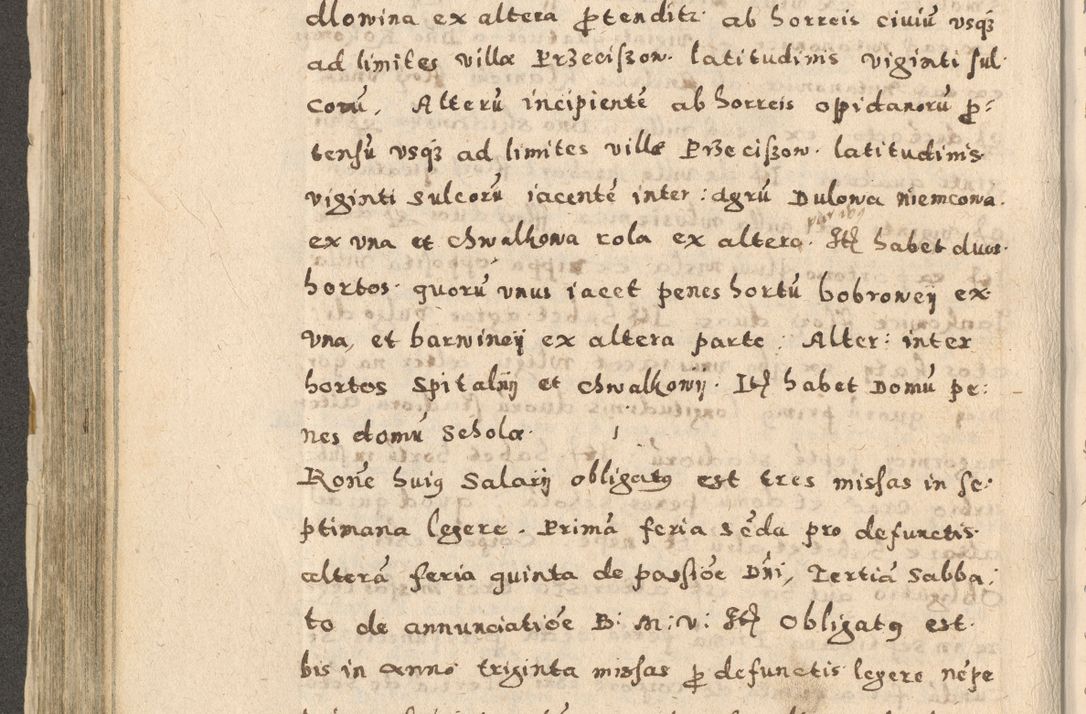 dlowina ex altera ꝑtenditz ab horreis civiū vsqꝫ
ad limites villæ Przecißow. latitudinis viginti sul-
corū, Alterū incipientē ab horreis opidanorū ꝓ-
tensū vsqꝫ ad limites villæ Przecißow. latitudinis
viginti sulcorū iacentē inter: agrū Dulowa niemcowa.
ex vna et chwalkowa rola ex altera. Itē habet duos.
hortos. quorū vnus iacet penes hortū bobrowey ex
vna, et barwiney ex altera parte. Alter: inter
hortos Spitalny et chwalkowy. Itē habet Domū pe:
nes domū Scholæ.
Ronē huiꝰ Salarij obligatꝰ est tres missas in se-
ptimana legere. Primā feria scda pro defunctis
alterā feria quinta de passiōe Dni, Tertiā Sabba:
to de annunciatiōe B: M: V: Itē Obligatꝰ est
bis in anno triginta missas ꝓ defunctis legere nēpe